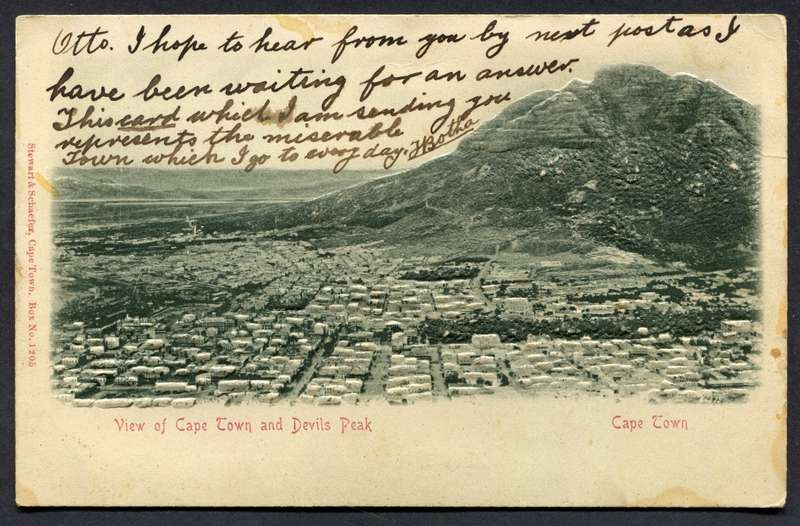 Otto. I hope to hear from you by next post as I
have been waiting for an answer.
This card which I am sending you
represents the miserable
Town which I go to every day. JBotha
Stewart & Schaefer, Cape Town. Box No. 1205
View of Cape Town and Devils Peak
Cape Town